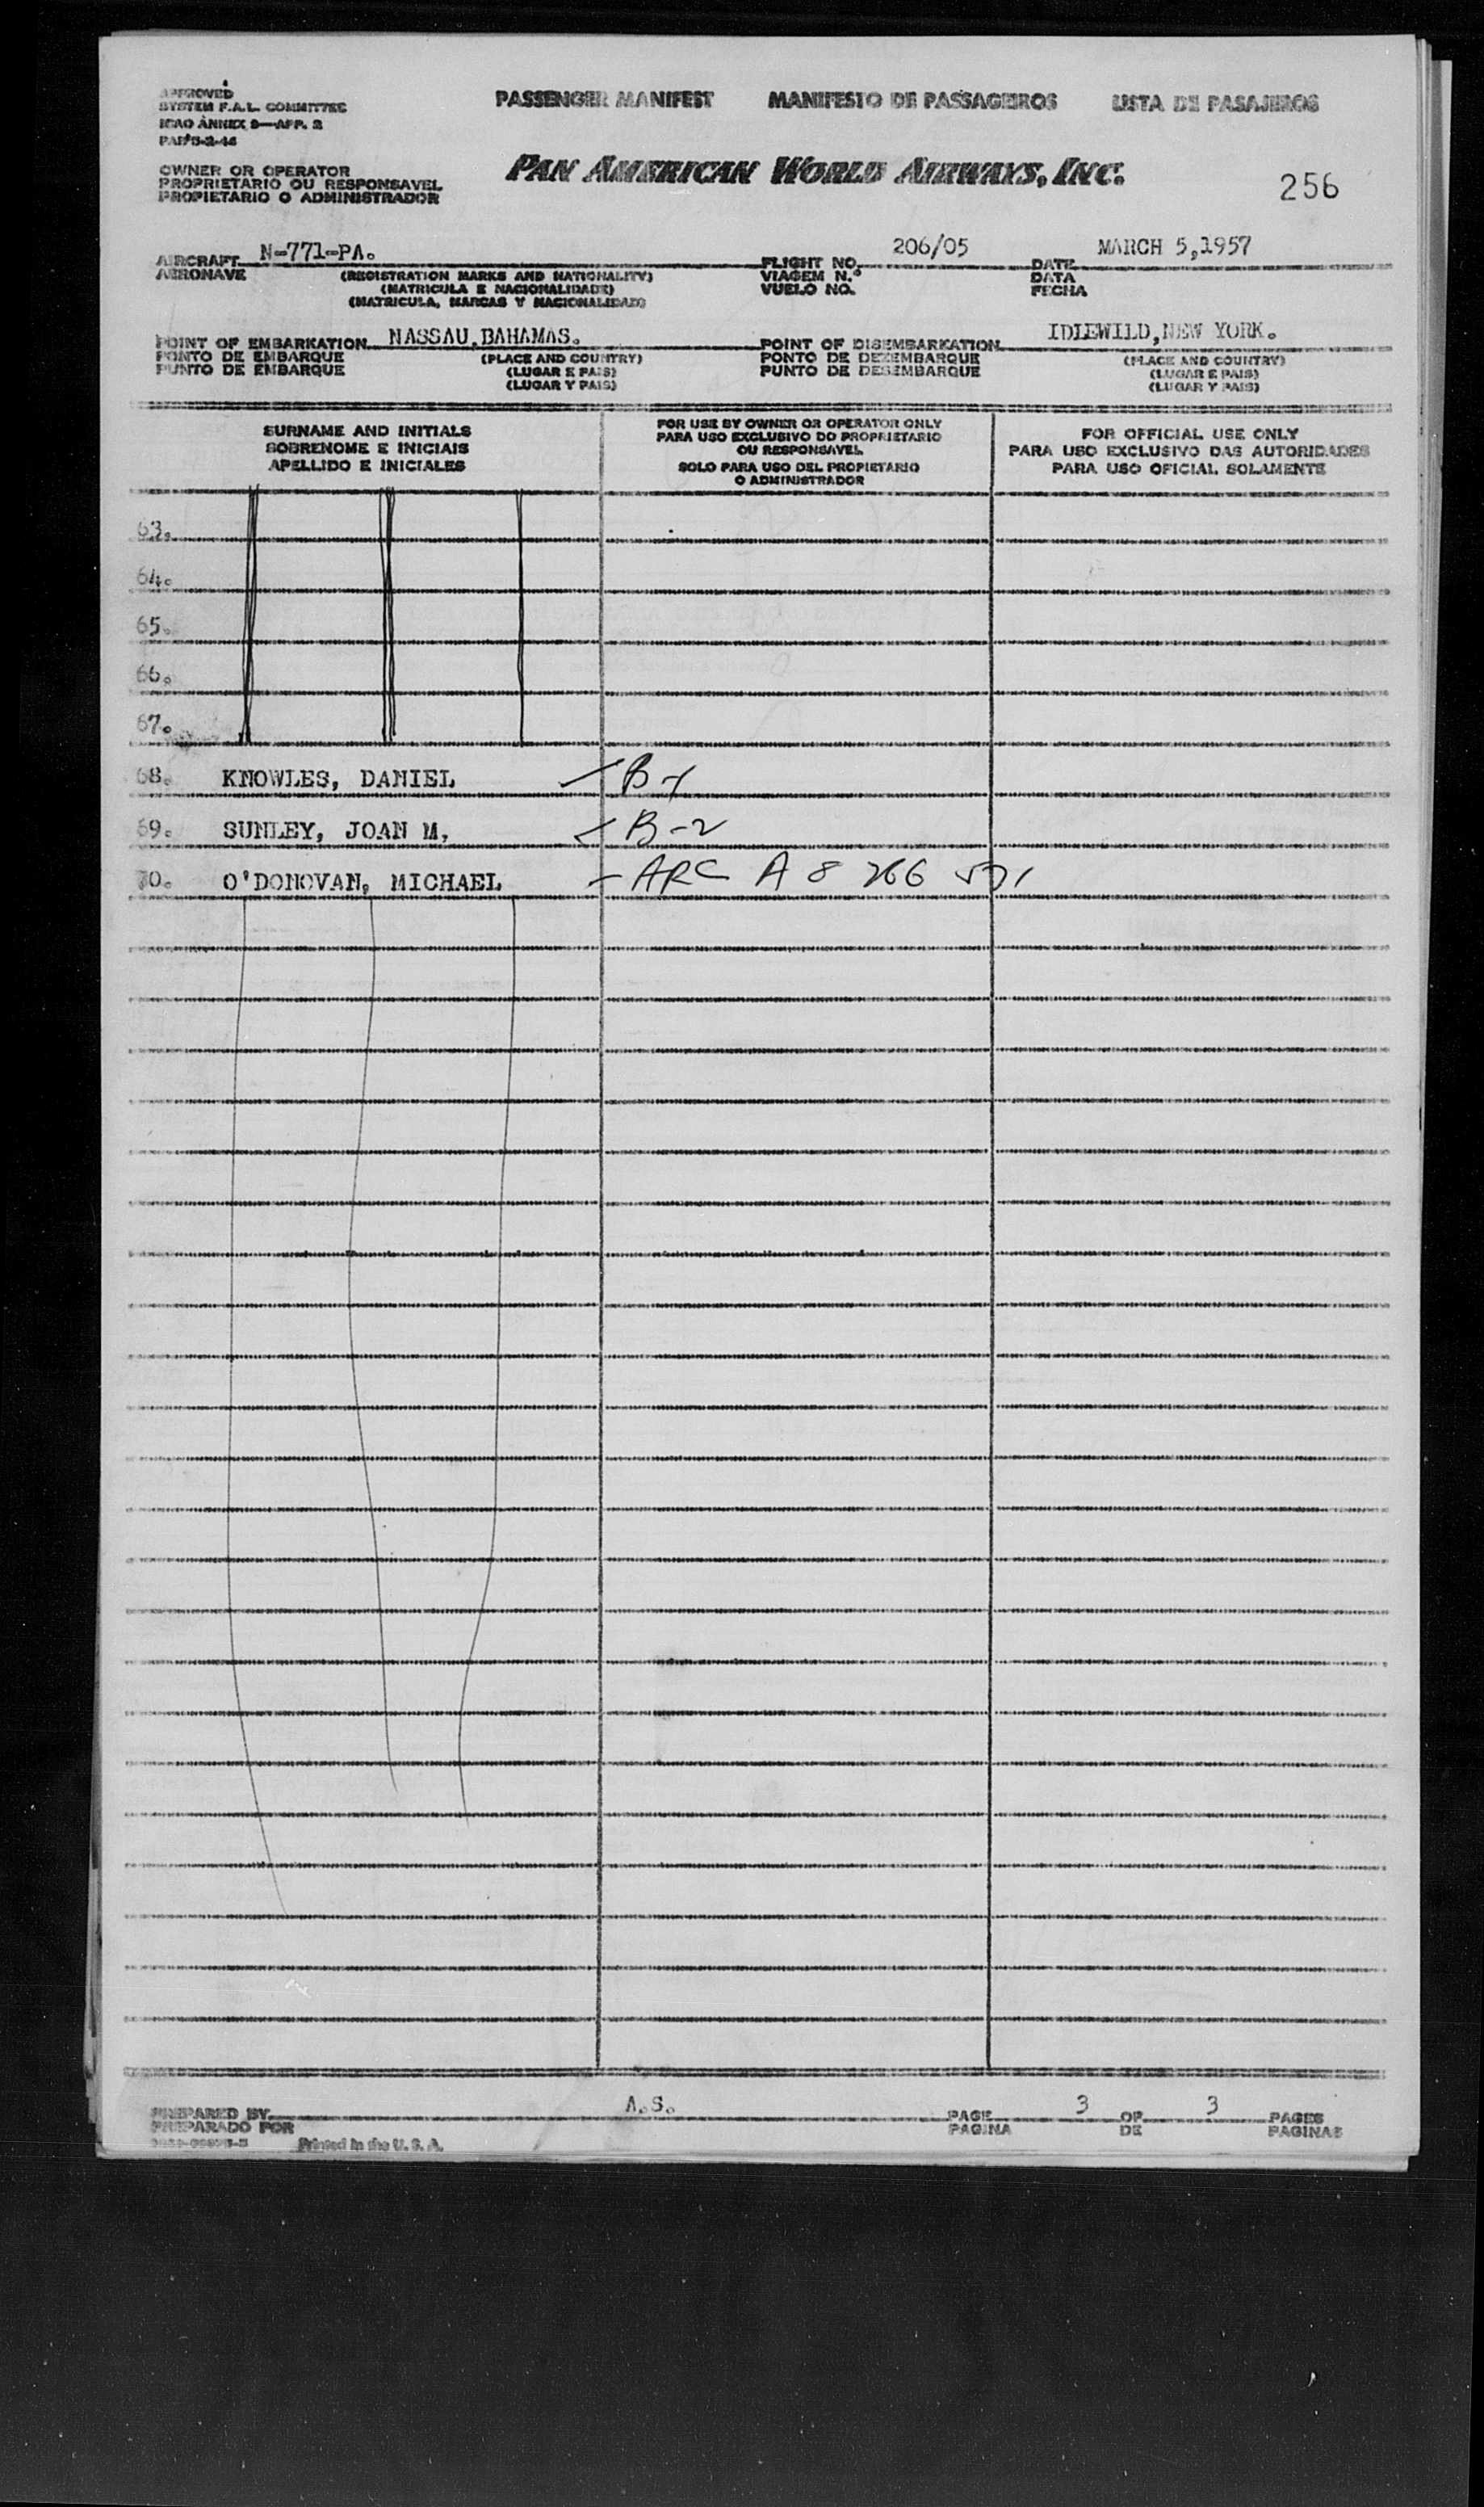 APPROVED
SYSTEM F.A.L. COMMITTEE
ICAO ANNEX 9—APP. 2
PASSENGER MANIFEST MANIFESTO DE PASSAGEIROS LISTA DE PASAJEROS
OWNER OR OPERATOR
PROPRIETARIO OU RESPONSAVEL
PROPIETARIO O ADMINISTRADOR
PAN AMERICAN WORLD AIRWAYS, INC.
256
AIRCRAFT N-771-PA. FLIGHT NO. 206/05 DATE MARCH 5,1957
AERONAVE (REGISTRATION MARKS AND NATIONALITY) VIAGEM N.° DATA
(MATRICULA E NACIONALIDADE) VUELO NO. FECHA
(MATRICULA, MARCAS Y NACIONALIDAD)
POINT OF EMBARKATION NASSAU,BAHAMAS. POINT OF DISEMBARKATION IDLEWILD,NEW YORK.
PONTO DE EMBARQUE (PLACE AND COUNTRY) PONTO DE DEZEMBARQUE (PLACE AND COUNTRY)
PUNTO DE EMBARQUE (LUGAR E PAIS) PUNTO DE DESEMBARQUE (LUGAR E PAIS)
(LUGAR Y PAIS) (LUGAR Y PAIS)
SURNAME AND INITIALS
SOBRENOME E INICIAIS
APELLIDO E INICIALES
FOR USE BY OWNER OR OPERATOR ONLY
PARA USO EXCLUSIVO DO PROPRIETARIO
OU RESPONSAVEL
SOLO PARA USO DEL PROPIETARIO
O ADMINISTRADOR
FOR OFFICIAL USE ONLY
PARA USO EXCLUSIVO DAS AUTORIDADES
PARA USO OFICIAL SOLAMENTE
63.
64.
65.
66.
67.
68. KNOWLES, DANIEL B-1
69. SUNLEY, JOAN M. B-2
70. O'DONOVAN, MICHAEL ARC A 8 266 571
PREPARED BY A.S. PAGE 3 OF 3 PAGES
PREPARADO POR PAGINA DE PAGINAS
Printed in the U. S. A.